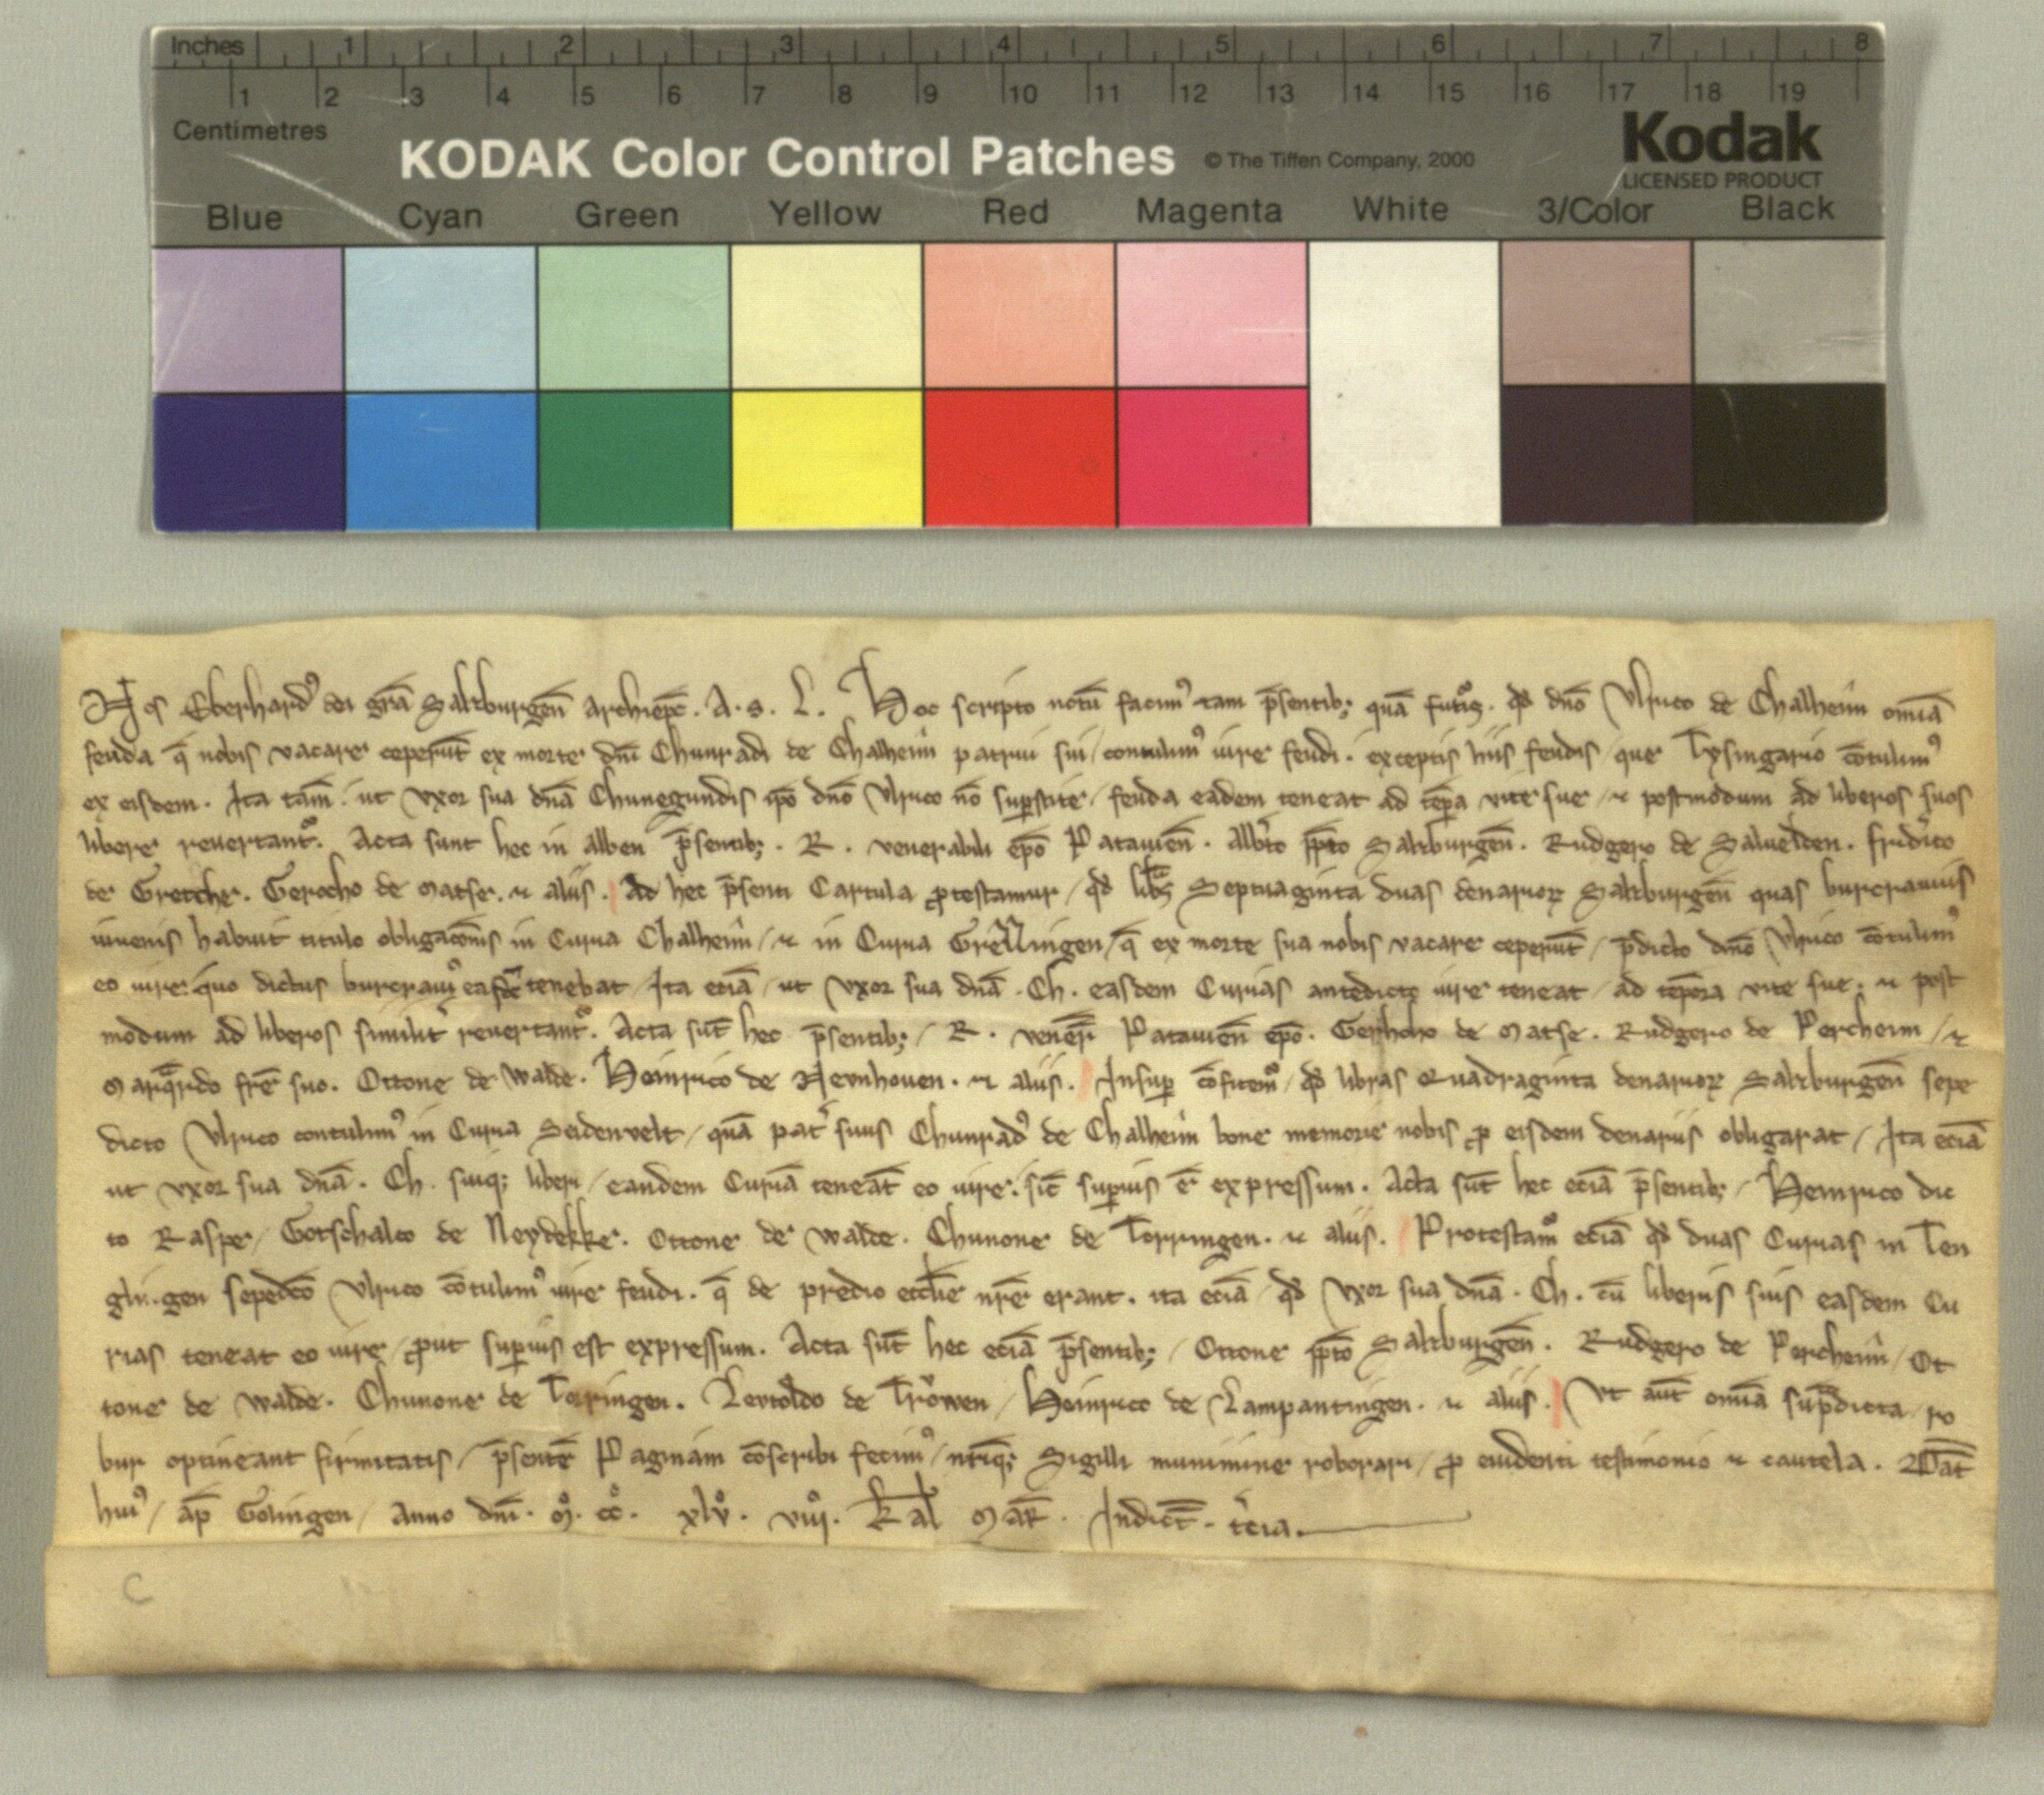 Inches 1 2 3 4 5 6 7 8
1 2 3 4 5 6 7 8 9 10 11 12 13 14 15 16 17 18 19
Centimetres
KODAK Color Control Patches © The Tiffen Company, 2000 Kodak
LICENSED PRODUCT
Blue Cyan Green Yellow Red Magenta White 3/Color Black
Nos Eberhardꝰ dei grā Salzburgen̄ Archiep̄c. A. s. L. Hoc scripto notū facimꝰ tam p̄sentib; quā futuꝝ. qd̄ dn̄o Vlrico de Chalheim om̄ia
feuda q̄ nobis vacare ceperūt ex morte dn̄i Chunradi de Chalheim patrui sui / contulimꝰ iure feudi. exceptis hiis feudis / que Tysingario cōtulimꝰ
ex eisdem. Ita tam̄. ut vxor sua dn̄a Chunegundis ip̄o dn̄o Vlrico nō sup̄stite / feuda eadem teneat ad tēpa vite sue / ⁊ postmodum ad liberos suos
libere reuertant᷑. Acta sunt hec in alben p̄sentib;. R. venerabili ep̄o Patauien̄. Alb̄to pp̄to Salzburgen̄. Rudgero de Saluelden. frid̄ico
de Gretche. Gerocho de Matse. ⁊ aliis. Ad hec p̄senti Cartula ꝓtestamur / qd̄ lib̄s Septuaginta duas denarioꝝ Salzburgen̄ quas burcrauius
iuuenis habuit titulo obligacōnis in Curia Chalheim / ⁊ in Curia Grellingen / q̄ ex morte sua nobis vacare ceperūt / p̄dicto dn̄o Vlrico cōtulimꝰ
eo iure quo dictus burcrauiꝰ tenebat / Ita eciā / ut vxor sua dn̄a. Ch. easdem Curias antedicto iure teneat / ad tēpora vite sue. ⁊ post
modum ad liberos similit̉ reuertant᷑. Acta sūt hec p̄sentib; / R. ven̄er̄ Patauien̄ ep̄o. Gerhoho de Matse. Rudgero de Percheim / ⁊
Marq̄rdo fr̄e suo. Ottone de Walde. Heinrico de Nevnhouen. ⁊ aliis. Insup̄ cōfitem᷑ / qd̄ libras Quadraginta denarioꝝ Salzburgen̄ sepe
dicto Vlrico contulimꝰ in Curia Seidenvelt / quā pat̉ suus Chunradꝰ de Chalheim bone memorie nobis ꝓ eisdem denariis obligarat / Ita eciā
ut vxor sua dn̄a. Ch. suiq; liberi / eandem Curiā teneāt eo iure. sic̄ sup̄ius ē expressum. Acta sūt hec eciā p̄sentib; / Heinrico dic
to Raspe / Gotschalco de Neydekke. Ottone de Walde. Chunone de Torringen. ⁊ aliis. Protestam᷑ eciā qd̄ duas Curias in Ten
glingen seped̄co Vlrico cōtulimꝰ iure feudi. q̄ de predio eccl̄ie nr̄e erant. ita eciā qd̄ Vxor sua dn̄a. Ch. cū liberis suis easdem Cu
rias teneat eo iure / ꝓut sup̄ius est expressum. Acta sūt hec eciā p̄sentib; / Ottone pp̄to Salzburgen̄. Rudgero de Percheim / Ot
tone de Walde. Chunone de Torringen. Levtoldo de Trowen / Heinrico de Lampantingen. ⁊ aliis. Vt aut̄ om̄ia sup̄dicta ro
bur optineant firmitatis / p̄sentē Paginam cōscribi fecimꝰ / nr̄iq; Sigilli munimine roborari / ꝓ euidenti testimonio ⁊ cautela. Dat̄
huiꝰ / ap̄ Golingen / Anno dn̄i. M̊. cc̊. xlv̊. viii̊. Kal̄ Mar̄. Indict̄. t̉cia.
C